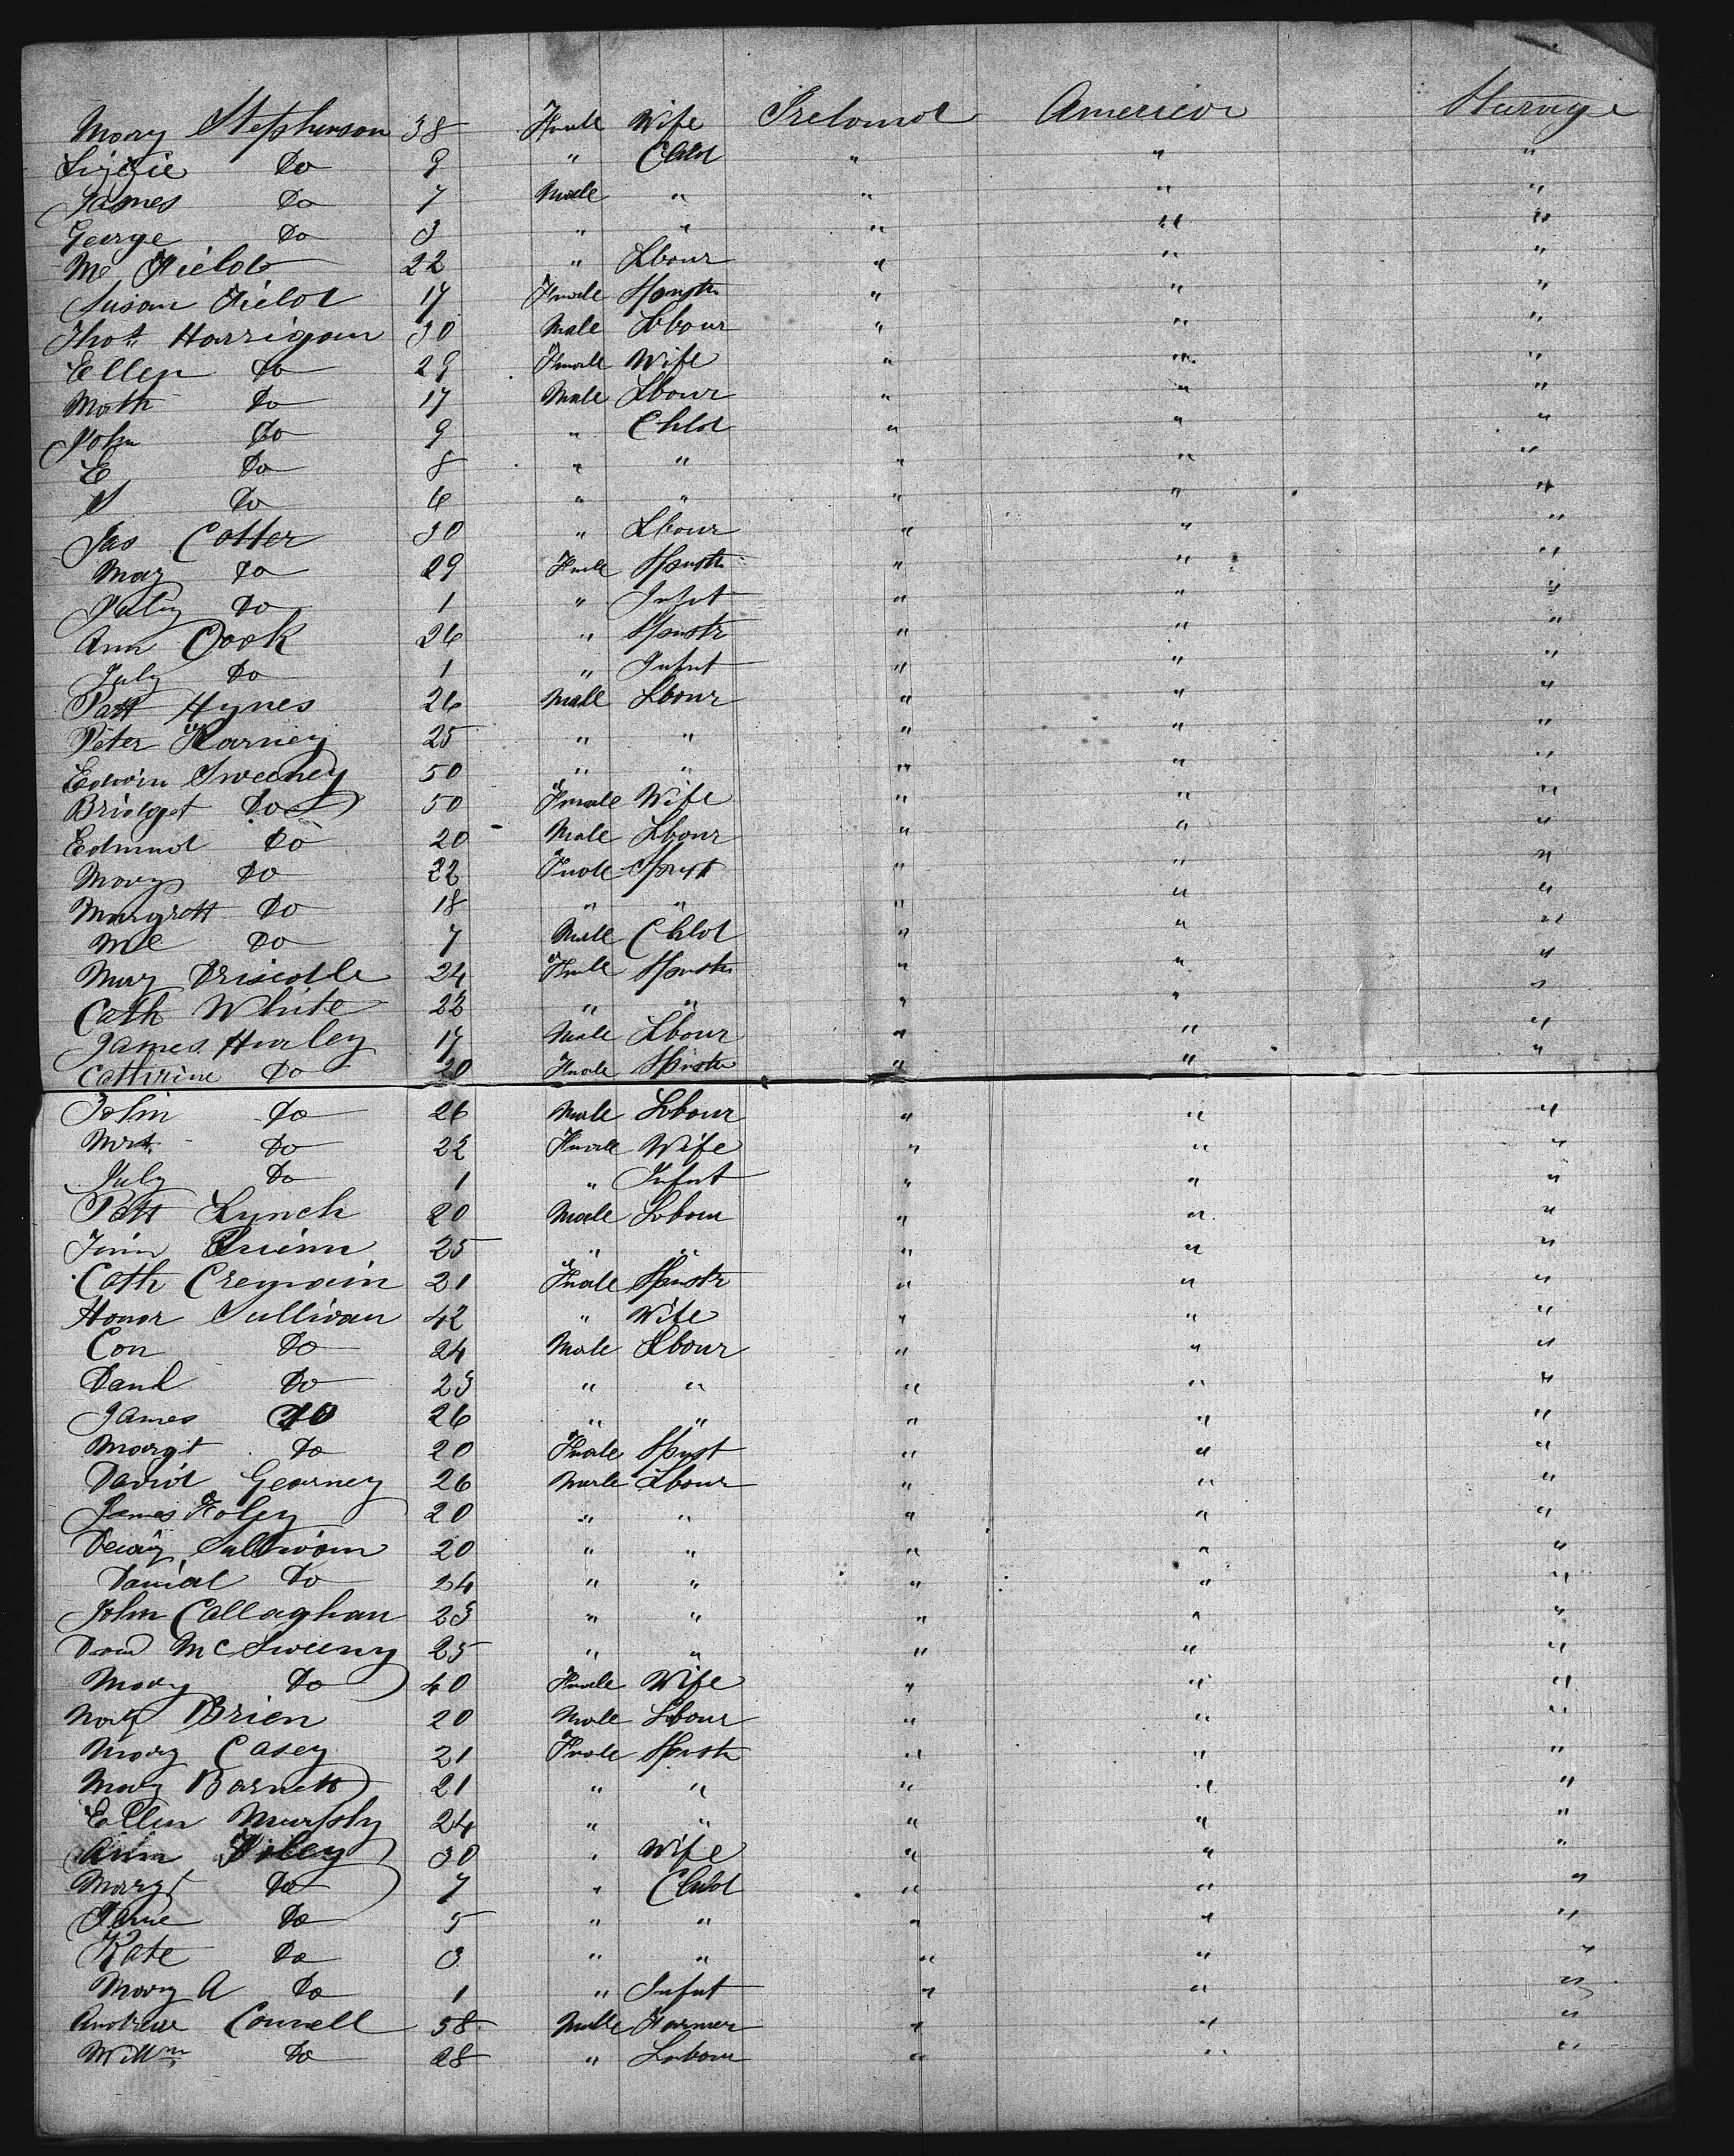 Mary Stephenson 38 Fmale Wife Ireland America Steerage
Lizzie Do 9 " Child " " "
James Do 7 Male " " " "
George Do 3 " " " " "
Field 22 " Lbour " " "
Susan Field 17 Fmale Spnstr " " "
Thos Harrigan 30 Male Lbour " " "
Ellen Do 29 Fmale Wife " " "
Math Do 17 Male Lbour " " "
John Do 9 " Chld " " "
E Do 8 " " " " "
Do 6 " " " " "
Jas Cotter 30 " Lbour " " "
Mary Do 29 Fmale Spnstr " " "
July Do 1 " Infnt " " "
Ann Cook 26 " Spnstr " " "
July Do 1 " Infnt " " "
Patt Hynes 26 Male Lbour " " "
Peter Karney 25 " " " " "
Edwin Sweeney 50 " " " " "
Bridget Do 50 Fmale Wife " " "
Edmund Do 20 Male Lbour " " "
Mary Do 22 Fmale Spnst " " "
Margrett Do 18 " " " " "
Do 7 Male Chld " " "
Mary Driscolle 24 Fmale Spnstr " " "
Cath White 22 " " " " "
James Hurley 17 Male Lbour " " "
Cathrine Do 20 Fmale Spnstr " " "
John Do 26 Male Lbour " " "
Mrs Do 22 Fmale Wife " " "
July Do 1 " Infnt " " "
Patt Lynch 20 Male Lbour " " "
Quinn 25 " " " " "
Cath Cremain 21 Fmale Spnstr " " "
Honor Sullivan 42 " Wife " " "
Con Do 24 Male Lbour " " "
Danl Do 23 " " " " "
James Do 26 " " " " "
Margt Do 20 Fmale Spnst " " "
David Gearney 26 Male Lbour " " "
James Foley 20 " " " " "
Sullivan 20 " " " " "
Danial Do 24 " " " " "
John Callaghan 23 " " " " "
McSweeny 25 " " " " "
Mary Do 40 Fmale Wife " " "
Brien 20 Male Lbour " " "
Mary Casey 21 Fmale Spnstr " " "
Mary Barnett 21 " " " " "
Ellen Murphy 24 " " " " "
Ann Foley 30 " Wife " " "
Margt Do 7 " Child " " "
Jane Do 5 " " " " "
Kate Do 3 " " " " "
Mary A Do 1 " Infnt " " "
Andrew Connell 58 Male Farmer " " "
Willm Do 28 " Labour " " "